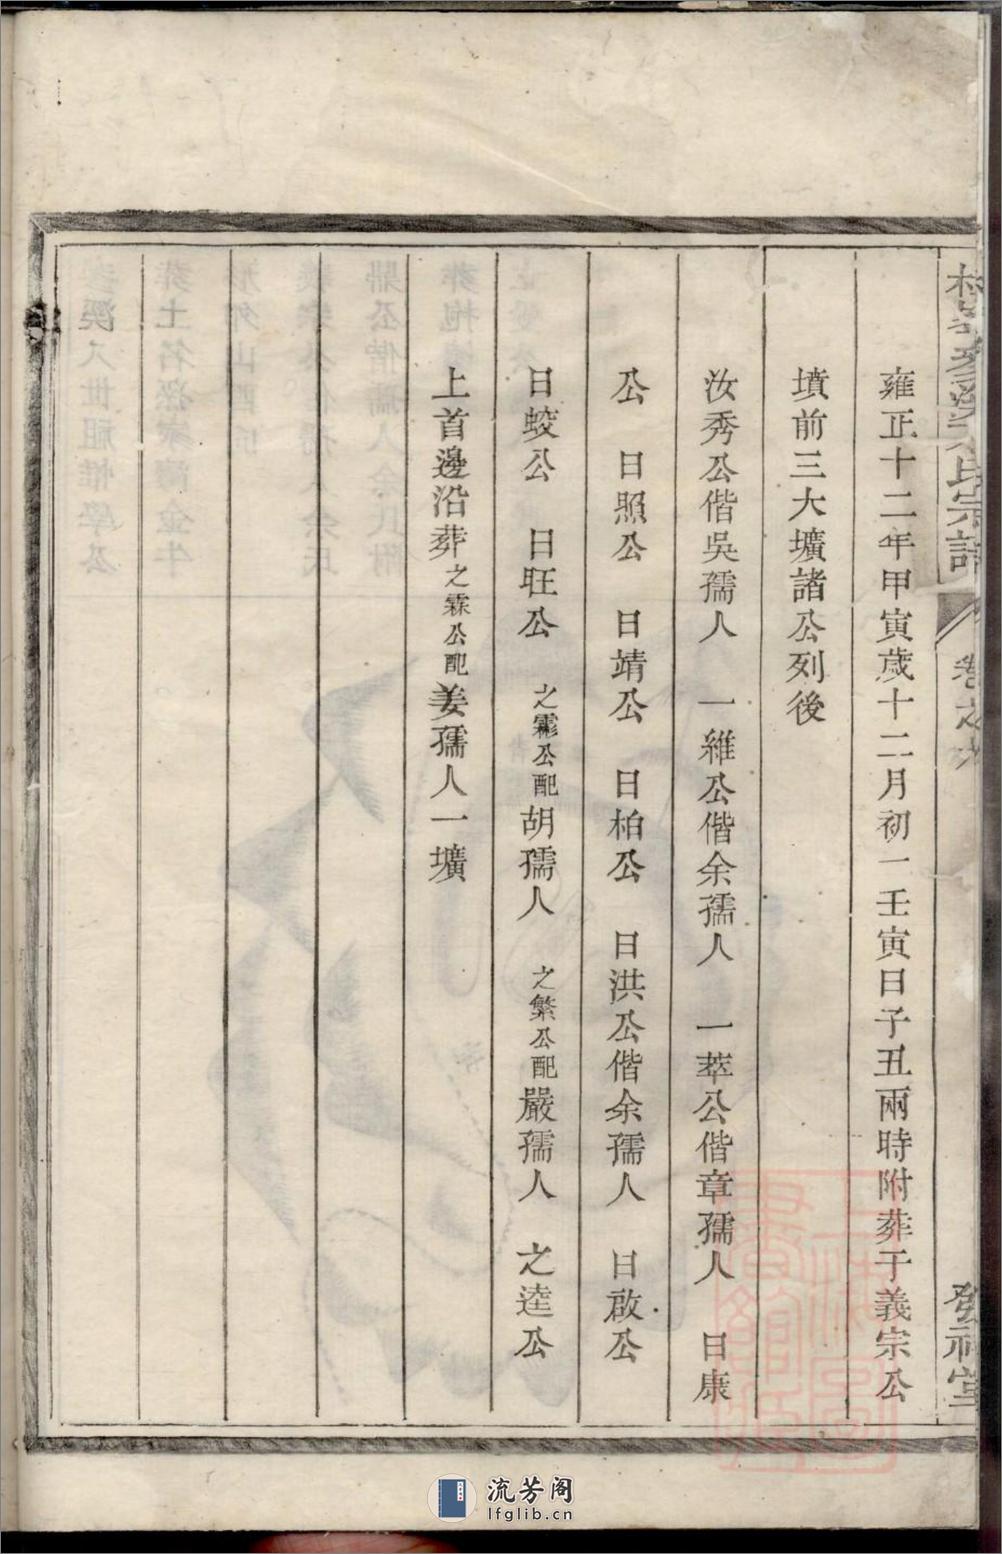 雍正十二年甲寅歲十二月初一壬寅日子丑兩時附葬于義宗公
墳前三大壙諸公列後
汝秀公偕吳孺人 一維公偕余孺人 一萃公偕章孺人 日康
公 日照公 日靖公 日柏公 日洪公偕余孺人 日啟公
日蛟公 日旺公 之霦公配胡孺人 之繁公配嚴孺人 之逵公
上首邊沿葬之霖公配姜孺人一壙
氏宗譜
卷之
祠堂
流芳阁
lfglib.cn